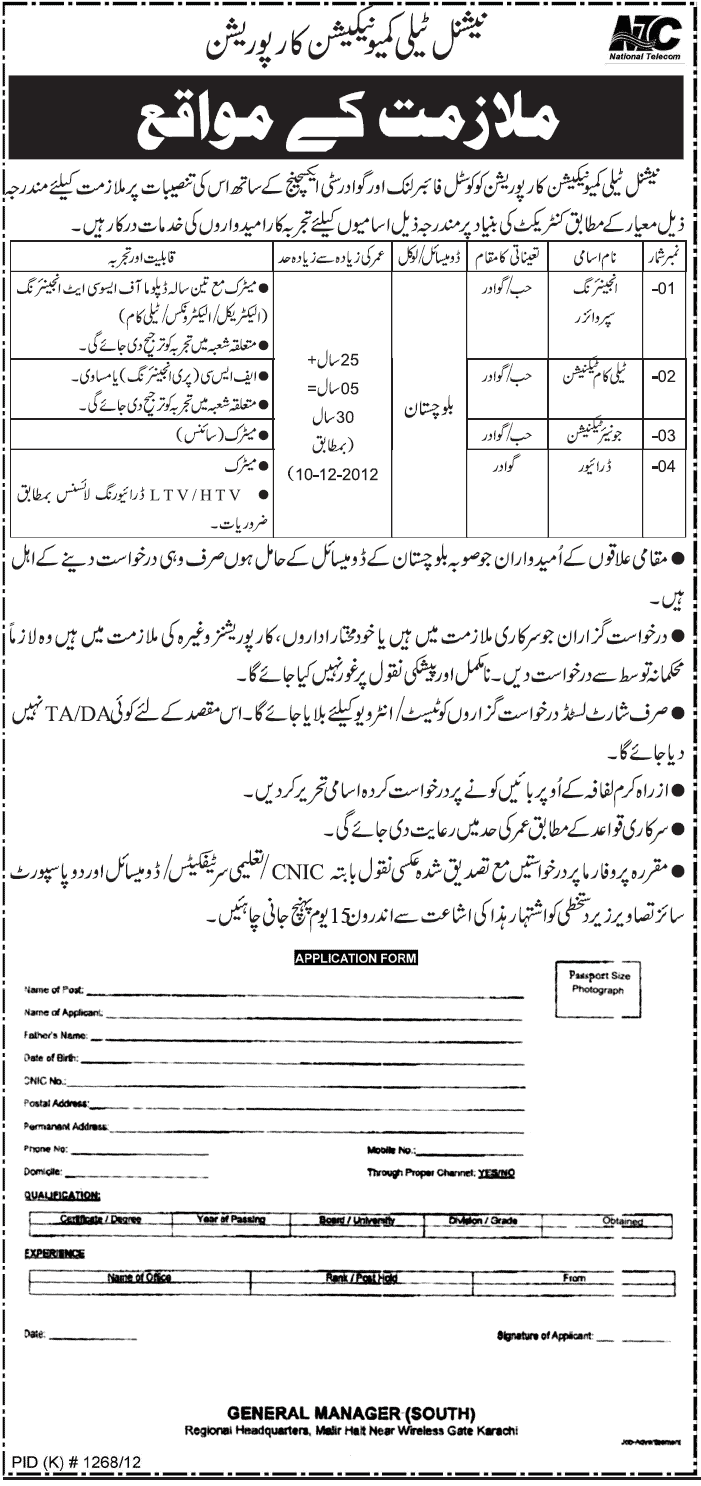 نیشنل ٹیلی کمیونیکیشن کارپوریشن
NTC
National Telecom
ملازمت کے مواقع
نیشنل ٹیلی کمیونیکیشن کارپوریشن کو کوسٹل فائبر لنک اور گوادر سٹی ایکسچینج کے ساتھ اس کی تنصیبات پر ملازمت کیلئے مندرجہ
ذیل معیار کے مطابق کنٹریکٹ کی بنیاد پر مندرجہ ذیل اسامیوں کیلئے تجربہ کار امیدواروں کی خدمات درکار ہیں۔
نمبر شمار نام اسامی تعیناتی کا مقام ڈومیسائل/لوکل عمر کی زیادہ سے زیادہ حد قابلیت اور تجربہ
01- انجینئرنگ سپروائزر حب/گوادر
● میٹرک مع تین سالہ ڈپلوما آف ایسوسی ایٹ انجینئرنگ
(الیکٹریکل/الیکٹرونکس/ٹیلی کام)
● متعلقہ شعبہ میں تجربہ کو ترجیح دی جائے گی۔
02- ٹیلی کام ٹیکنیشن حب/گوادر
● ایف ایس سی (پری انجینئرنگ) یا مساوی۔
● متعلقہ شعبہ میں تجربہ کو ترجیح دی جائے گی۔
03- جونیئر ٹیکنیشن حب/گوادر
● میٹرک (سائنس)
04- ڈرائیور گوادر
● میٹرک
● LTV/HTV ڈرائیورنگ لائسنس بمطابق
ضروریات۔
بلوچستان
25 سال+
05 سال=
30 سال
(بمطابق
10-12-2012)
● مقامی علاقوں کے اُمیدواران جو صوبہ بلوچستان کے ڈومیسائل کے حامل ہوں صرف وہی درخواست دینے کے اہل
ہیں۔
● درخواست گزاران جو سرکاری ملازمت میں ہیں یا خود مختار اداروں، کارپوریشنز وغیرہ کی ملازمت میں ہیں وہ لازماً
محکمانہ توسط سے درخواست دیں۔ نامکمل اور پیشگی نقول پر غور نہیں کیا جائے گا۔
● صرف شارٹ لسٹڈ درخواست گزاروں کو ٹیسٹ/انٹرویو کیلئے بلایا جائے گا۔ اس مقصد کے لئے کوئی TA/DA نہیں
دیا جائے گا۔
● ازراہ کرم لفافہ کے اُوپر بائیں کونے پر درخواست کردہ اسامی تحریر کردیں۔
● سرکاری قواعد کے مطابق عمر کی حد میں رعایت دی جائے گی۔
● مقررہ پروفارما پر درخواستیں مع تصدیق شدہ عکسی نقول بابتہ CNIC /تعلیمی سرٹیفکیٹس/ڈومیسائل اور دو پاسپورٹ
سائز تصاویر زیر دستخطی کو اشتہار ہذا کی اشاعت سے اندرون 15 یوم پہنچ جانی چاہئیں۔
APPLICATION FORM
Passport Size
Photograph
Name of Post:
Name of Applicant:
Father's Name:
Date of Birth:
CNIC No.:
Postal Address:
Permanant Address:
Phone No: Mobile No.:
Domicile: Through Proper Channel: YES/NO
QUALIFICATION:
Certificate / Degree Year of Passing Board / University Division / Grade Obtained
EXPERIENCE
Name of Office Rank / Post Hold From
Date: Signature of Applicant:
GENERAL MANAGER (SOUTH)
Regional Headquarters, Malir Halt Near Wireless Gate Karachi
Job-Advertisement
PID (K) # 1268/12